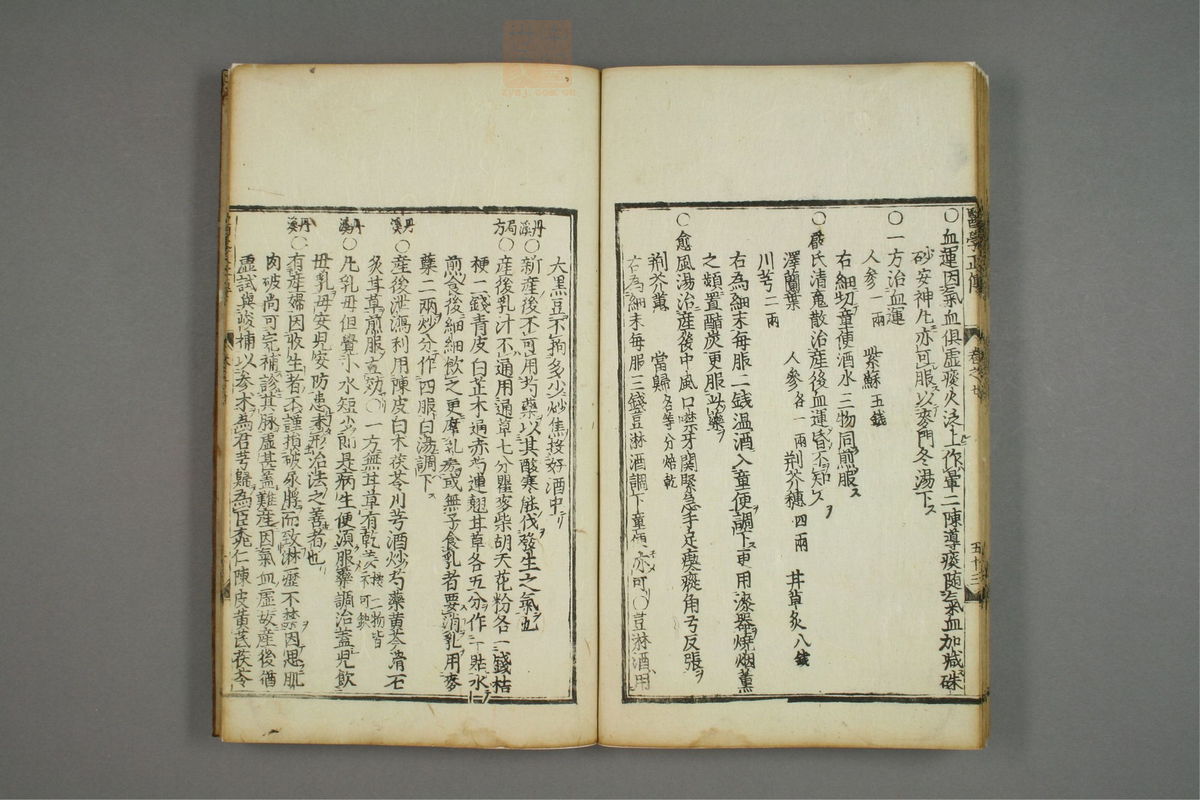 醫學正傳 卷之七 五十三
○血運因氣血俱虛痰火泛上作暈二陳導痰隨氣血加減硃
砂安神凡亦可服以麥門冬湯下
○一方治血運
人參一兩 紫蘇五錢
右細切童便酒水三物同煎服
○嚴氏清魂散治產後血運昏不知人
澤蘭葉 人參各一兩 荆芥穗四兩 甘草炙八錢
川芎二兩
右為細末每服二錢溫酒入童便調下更用漆器燒烟熏
之頻置醋炭更服此藥
○愈風湯治産後中風口噤牙關緊急手足瘈瘲角弓反張
荆芥蕙 當歸各等分焙乾
右為細末每服三錢荳淋酒調下童便亦可○荳淋酒用
大黑豆不拘多少炒焦投好酒中
丹溪○新産後不可用芍藥以其酸寒能伐發生之氣也
局方○産後乳汁不通用通草七分瞿麥柴胡天花粉各一錢桔
梗二錢青皮白芷木通赤芍連翹甘草各五分作一貼水
煎食後細細飲之更摩乳房或無子食乳者要消乳用麥
蘖二兩炒分作四服白湯調下
丹溪○産後泄瀉利用陳皮白术茯苓川芎酒炒芍藥黃芩滑石
炙甘草煎服立効○一方無甘草有乾姜按二物皆不可缺
丹溪○凡乳母但覺小水短少即是病生便須服藥調治蓋児飲
母乳母安児安防患未形治法之善者也
丹溪○有産婦因收生者不謹損破尿脬而致淋瀝不禁因思肌
肉破尚可完補診其脉虛甚蓋難産因氣血虛故產後猶
虛試與峻補以參术為君芎歸為臣桃仁陳皮黃芪茯苓